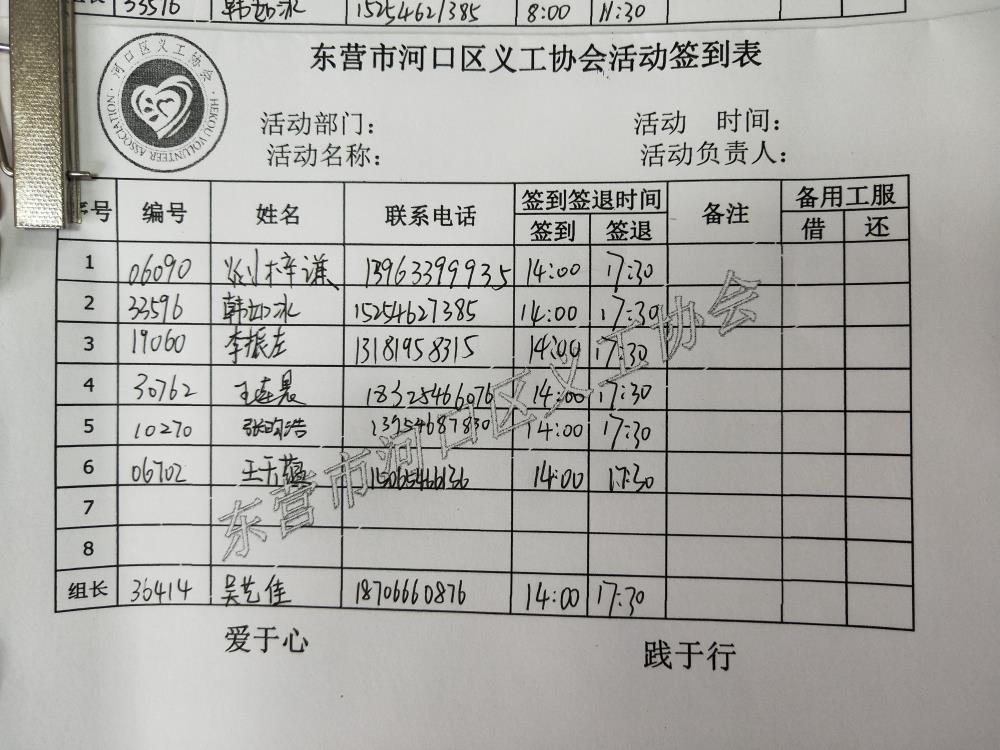 33596 韩如冰 15254627385 8:00 11:30
东营市河口区义工协会活动签到表
河口区义工协会
HEKOU VOLUNTEER ASSOCIATION
活动部门： 活动 时间：
活动名称： 活动负责人：
序号 编号 姓名 联系电话 签到签退时间 备注 备用工服
签到 签退 借 还
1 06090 刘梓谦 13963399935 14:00 17:30
2 33596 韩如冰 15254627385 14:00 17:30
3 19060 李振左 13181958315 14:00 17:30
4 30762 王连昊 18325466076 14:00 17:30
5 10270 张昀浩 13954687830 14:00 17:30
6 06702 王天蕴 15065466136 14:00 17:30
7
8
组长 36414 吴艺佳 18706660876 14:00 17:30
东营市河口区义工协会
爱于心 践于行